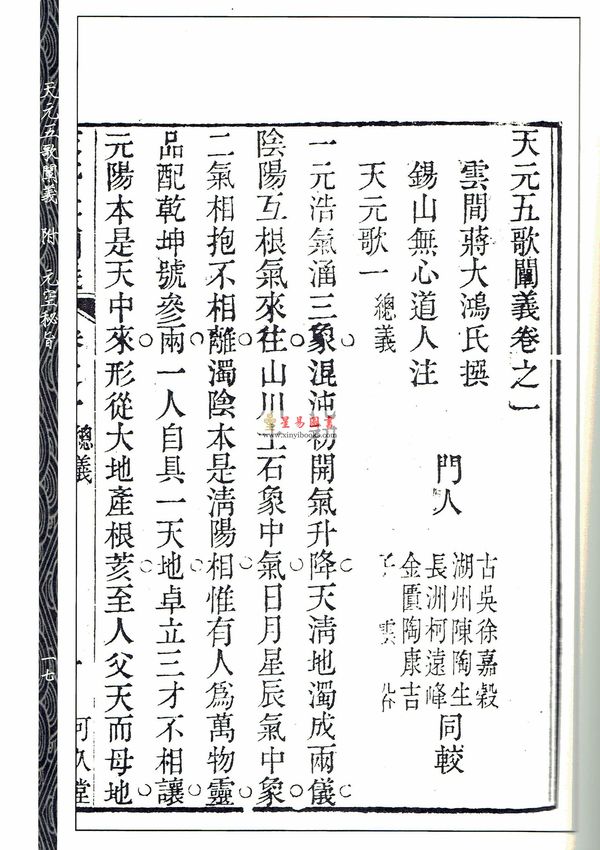 天元五歌闡義卷之一
雲間蔣大鴻氏撰
錫山無心道人注
門人
古吳徐嘉穀
湖州陳陶生
長洲柯遠峰
金匱陶康吉
子 雲
同較
天元歌一 總義
一元浩氣涵三象混沌初開氣升降天清地濁成兩儀
陰陽互根氣來往山川土石象中氣日月星辰氣中象
二氣相抱不相離濁陰本是淸陽相惟有人爲萬物靈
品配乾坤號參兩一人自具一天地卓立三才不相讓
元陽本是天中來形從大地產根荄至人父天而母地
總義
一
可久堂
天元五歌闡義 附 元空秘旨
一七
星易圖書
www.xinyibooks.com